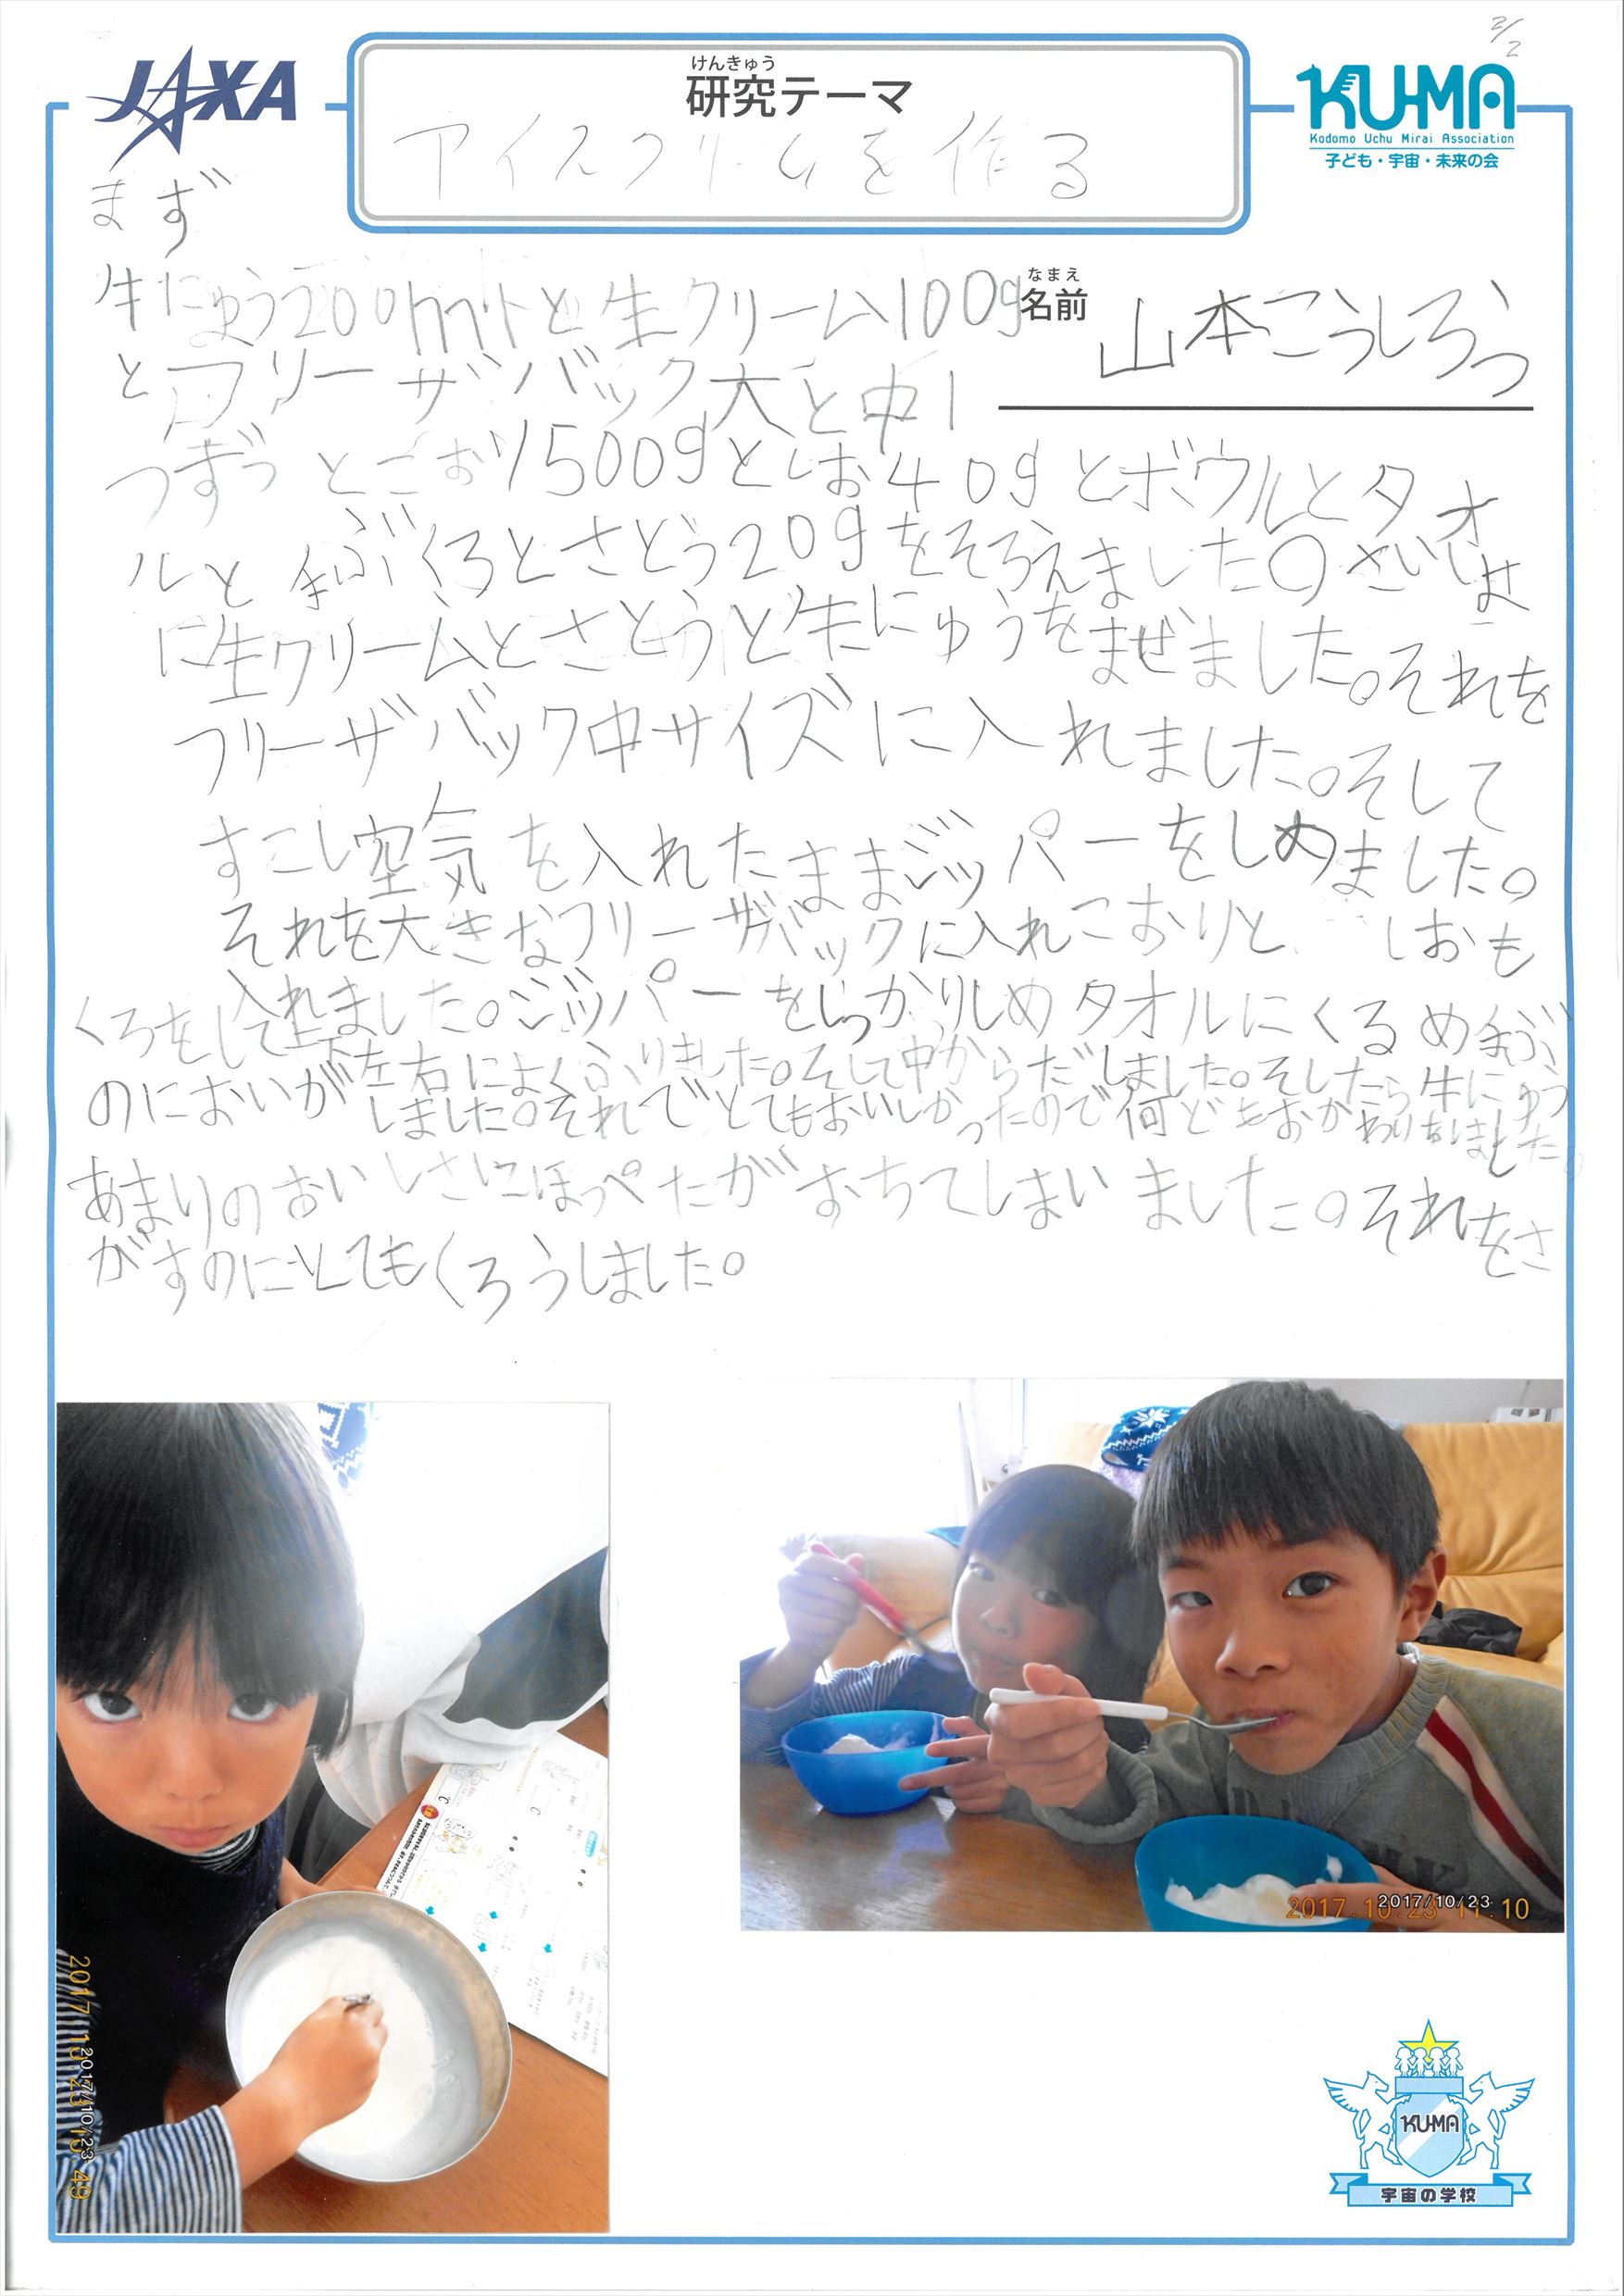 2/2
JAXA
けんきゅう
研究テーマ
アイスクリームを作る
KUMA
Kodomo Uchu Mirai Association
子ども・宇宙・未来の会
まず
牛にゅう200mlと生クリーム100g
なまえ
名前
山本こうしろう
とフリーザバック大と中1
つずつとこおり500gとしお40gとボウルとタオ
ルと手ぶくろとさとう20gをそろえました。さいしょ
に生クリームとさとうと牛にゅうをまぜました。それを
フリーザバック中サイズに入れました。そして
すこし空気を入れたままジッパーをしめました。
それを大きなフリーザバックに入れこおりと しおも
入れました。ジッパーをしっかりしめタオルにくるめ手ぶ
くろをして上下左右によくふりました。そして中からだしました。そしたら牛にゅう
のにおいがしました。それでとてもおいしかったので何どもおかわりをしました。
あまりのおいしさにほっぺたがおちてしまいました。それをさ
がすのにとてもくろうしました。
2017/10/23
2017.10.23 11:10
2017/10/23
KUMA
宇宙の学校